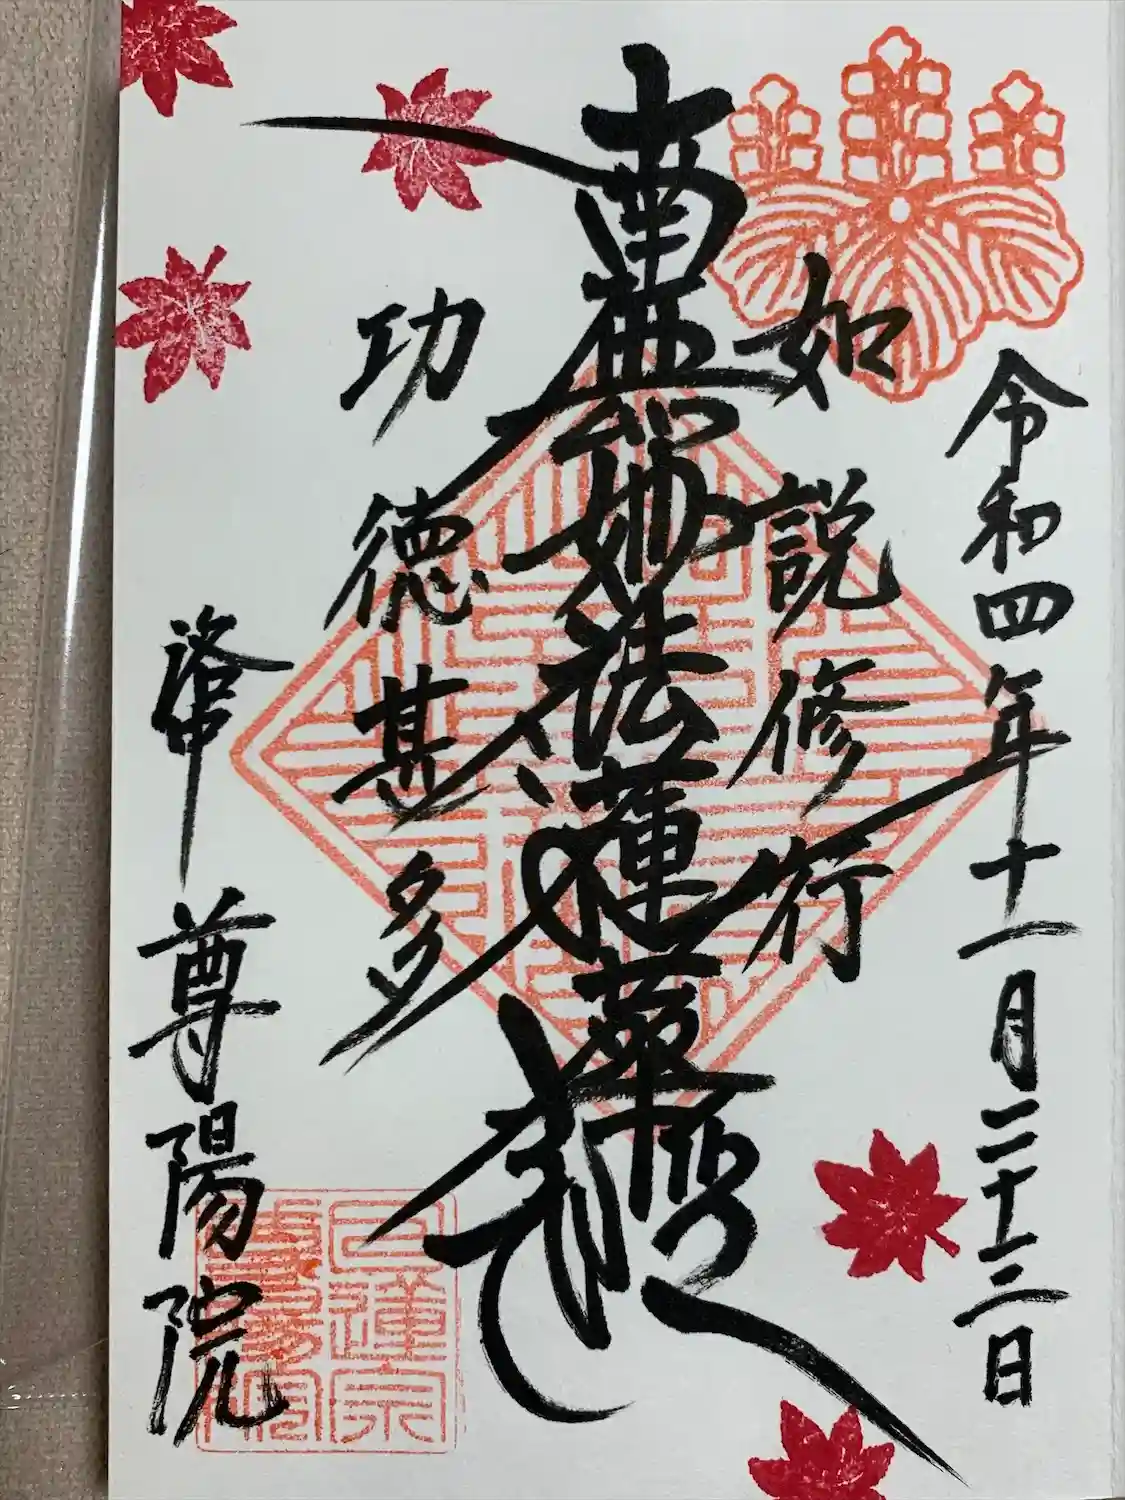 令和四年十一月二十三日
如説修行
南無妙法蓮華経
功徳甚多
洛中 尊陽院
日蓮宗